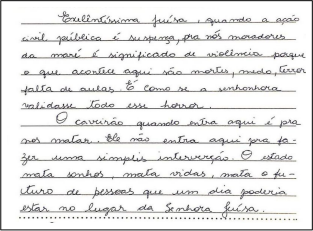 Exelentíssima juísa, quando a ação
civil pública é suspença, pra nós moradores
da maré é significado de violência porque
o que acontece aqui são mortes, medo, terror
falta de aulas. É como se a senhonhora
validasse todo esse horror.
O caveirão quando entra aqui é pra
nos matar. Ele não entra aqui pra fa-
zer uma simplis intervenção. O estado
mata sonhos, mata vidas, mata o fu-
turo de pessoas que um dia poderia
estar no lugar da Senhora juísa.